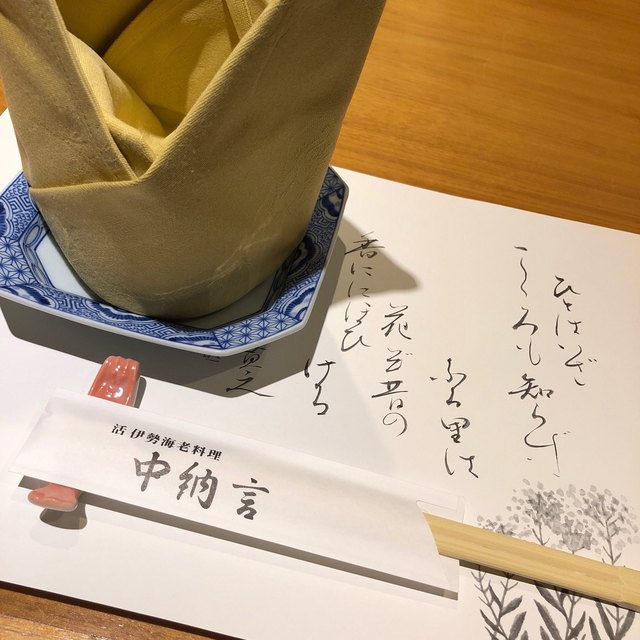 ひとはいざ
こゝろも知らず
ふる里は
花ぞ昔の
香ににほひ
ける
貫之
活 伊勢海老料理
中納言